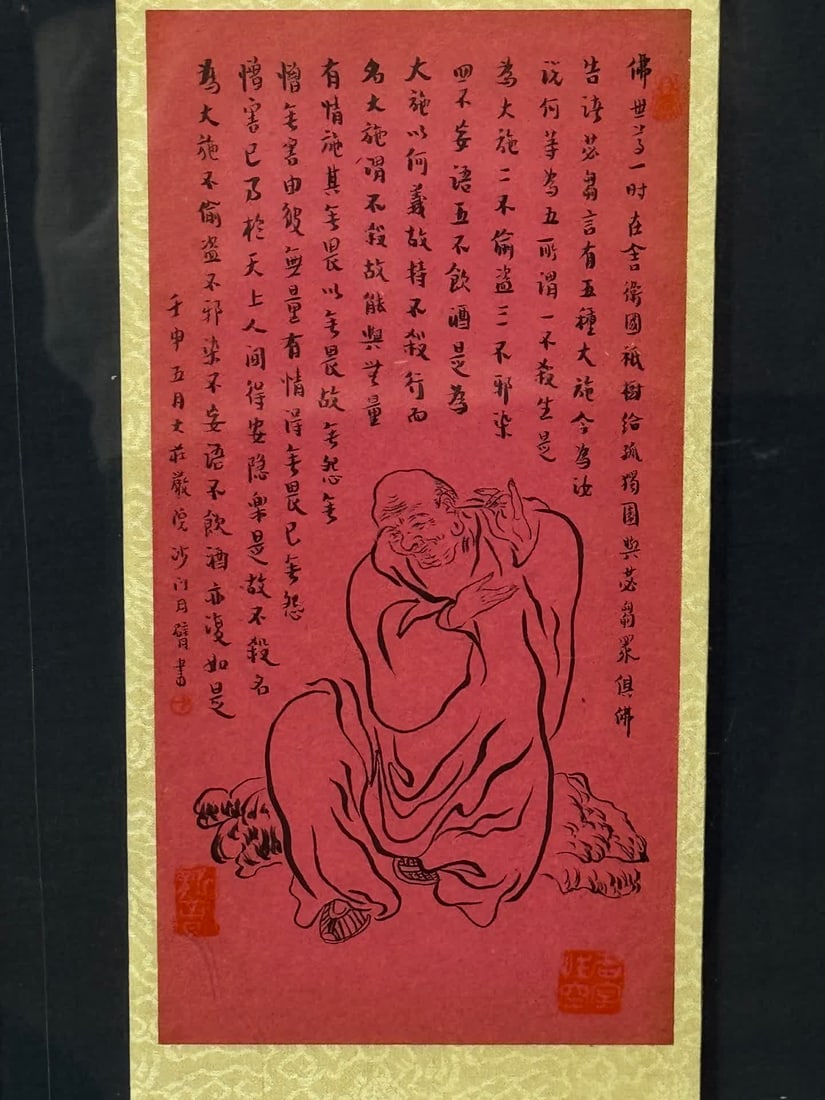 佛世尊一时在舍衛國祇樹給孤獨園與苾芻眾俱佛
告語苾芻言有五種大施今為汝
説何等為五所謂一不殺生是
為大施二不偷盜三不邪染
四不妄語五不飲酒是為
大施以何義故持不殺行而
名大施謂不殺故能與無量
有情施其無畏以無畏故無怨無
憎無害由彼無量有情得無畏已無怨
憎害已乃於天上人间得安隱樂是故不殺名
為大施不偷盜不邪染不妄語不飲酒亦復如是
壬申五月大莊嚴院沙门月臂書